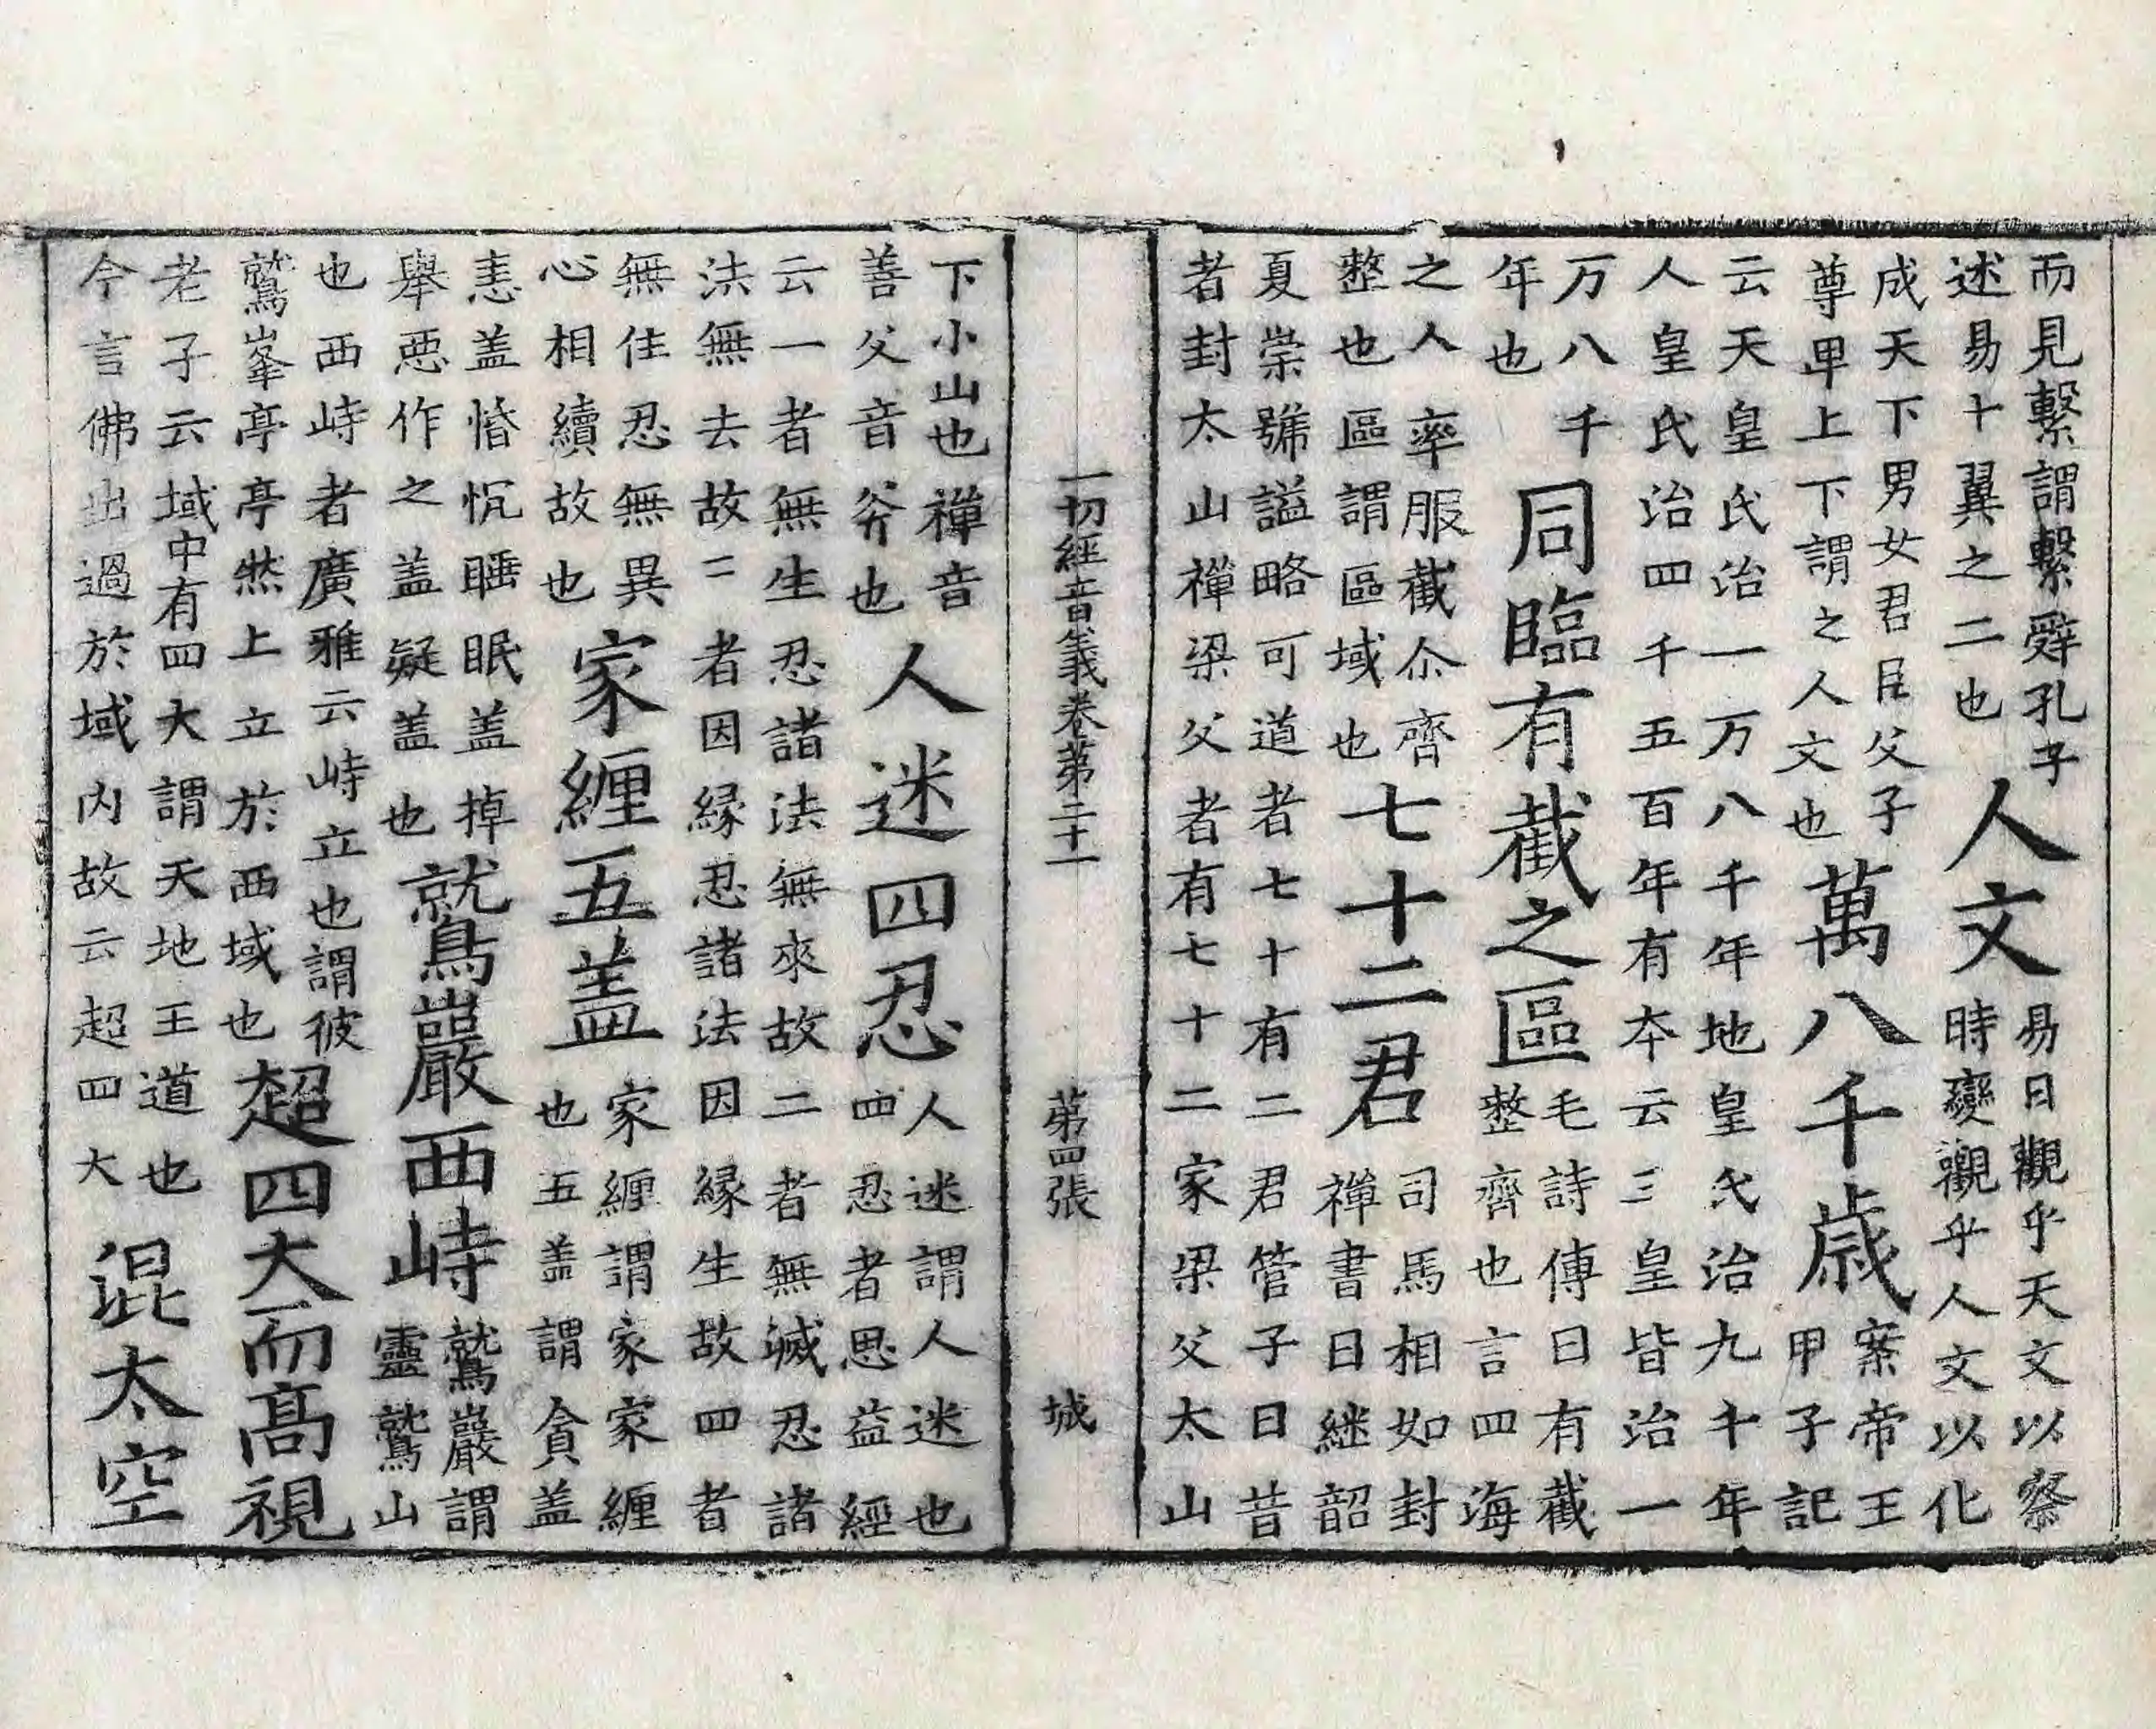 而見繫謂繫辭孔子
述易十翼之二也
人文
易曰觀乎天文以察
時變觀乎人文以化
成天下男女君臣父子
尊卑上下謂之人文也
萬八千歲
案帝王
甲子記
云天皇氏治一万八千年地皇氏治九千年
人皇氏治四千五百年有夲云三皇皆治一
万八千
年也
同臨有截之區
毛詩傳曰有截
整齊也言四海
之人率服截尒齊
整也區謂區域也
七十二君
司馬相如封
禪書曰継韶
夏崇號謚略可道者七十有二君管子曰昔
者封太山禪梁父者有七十二家梁父太山
一切經音義卷第二十一
第四張
城
下小山也禪音
善父音斧也
人迷四忍
人迷謂人迷也
四忍者思益經
云一者無生忍諸法無來故二者無滅忍諸
法無去故二者因縁忍諸法因縁生故四者
無住忍無異
心相續故也
家纒五盖
家纒謂家家纒
也五盖謂貪盖
恚盖惛忱睡眠盖掉
舉惡作之盖疑盖也
鷲巖西峙
鷲巖謂
靈鷲山
也西峙者廣雅云峙立也謂彼
鷲峯亭亭然上立於西域也
超四大而高視
老子云域中有四大謂天地王道也
今言佛出過於域内故云超四大
混太空